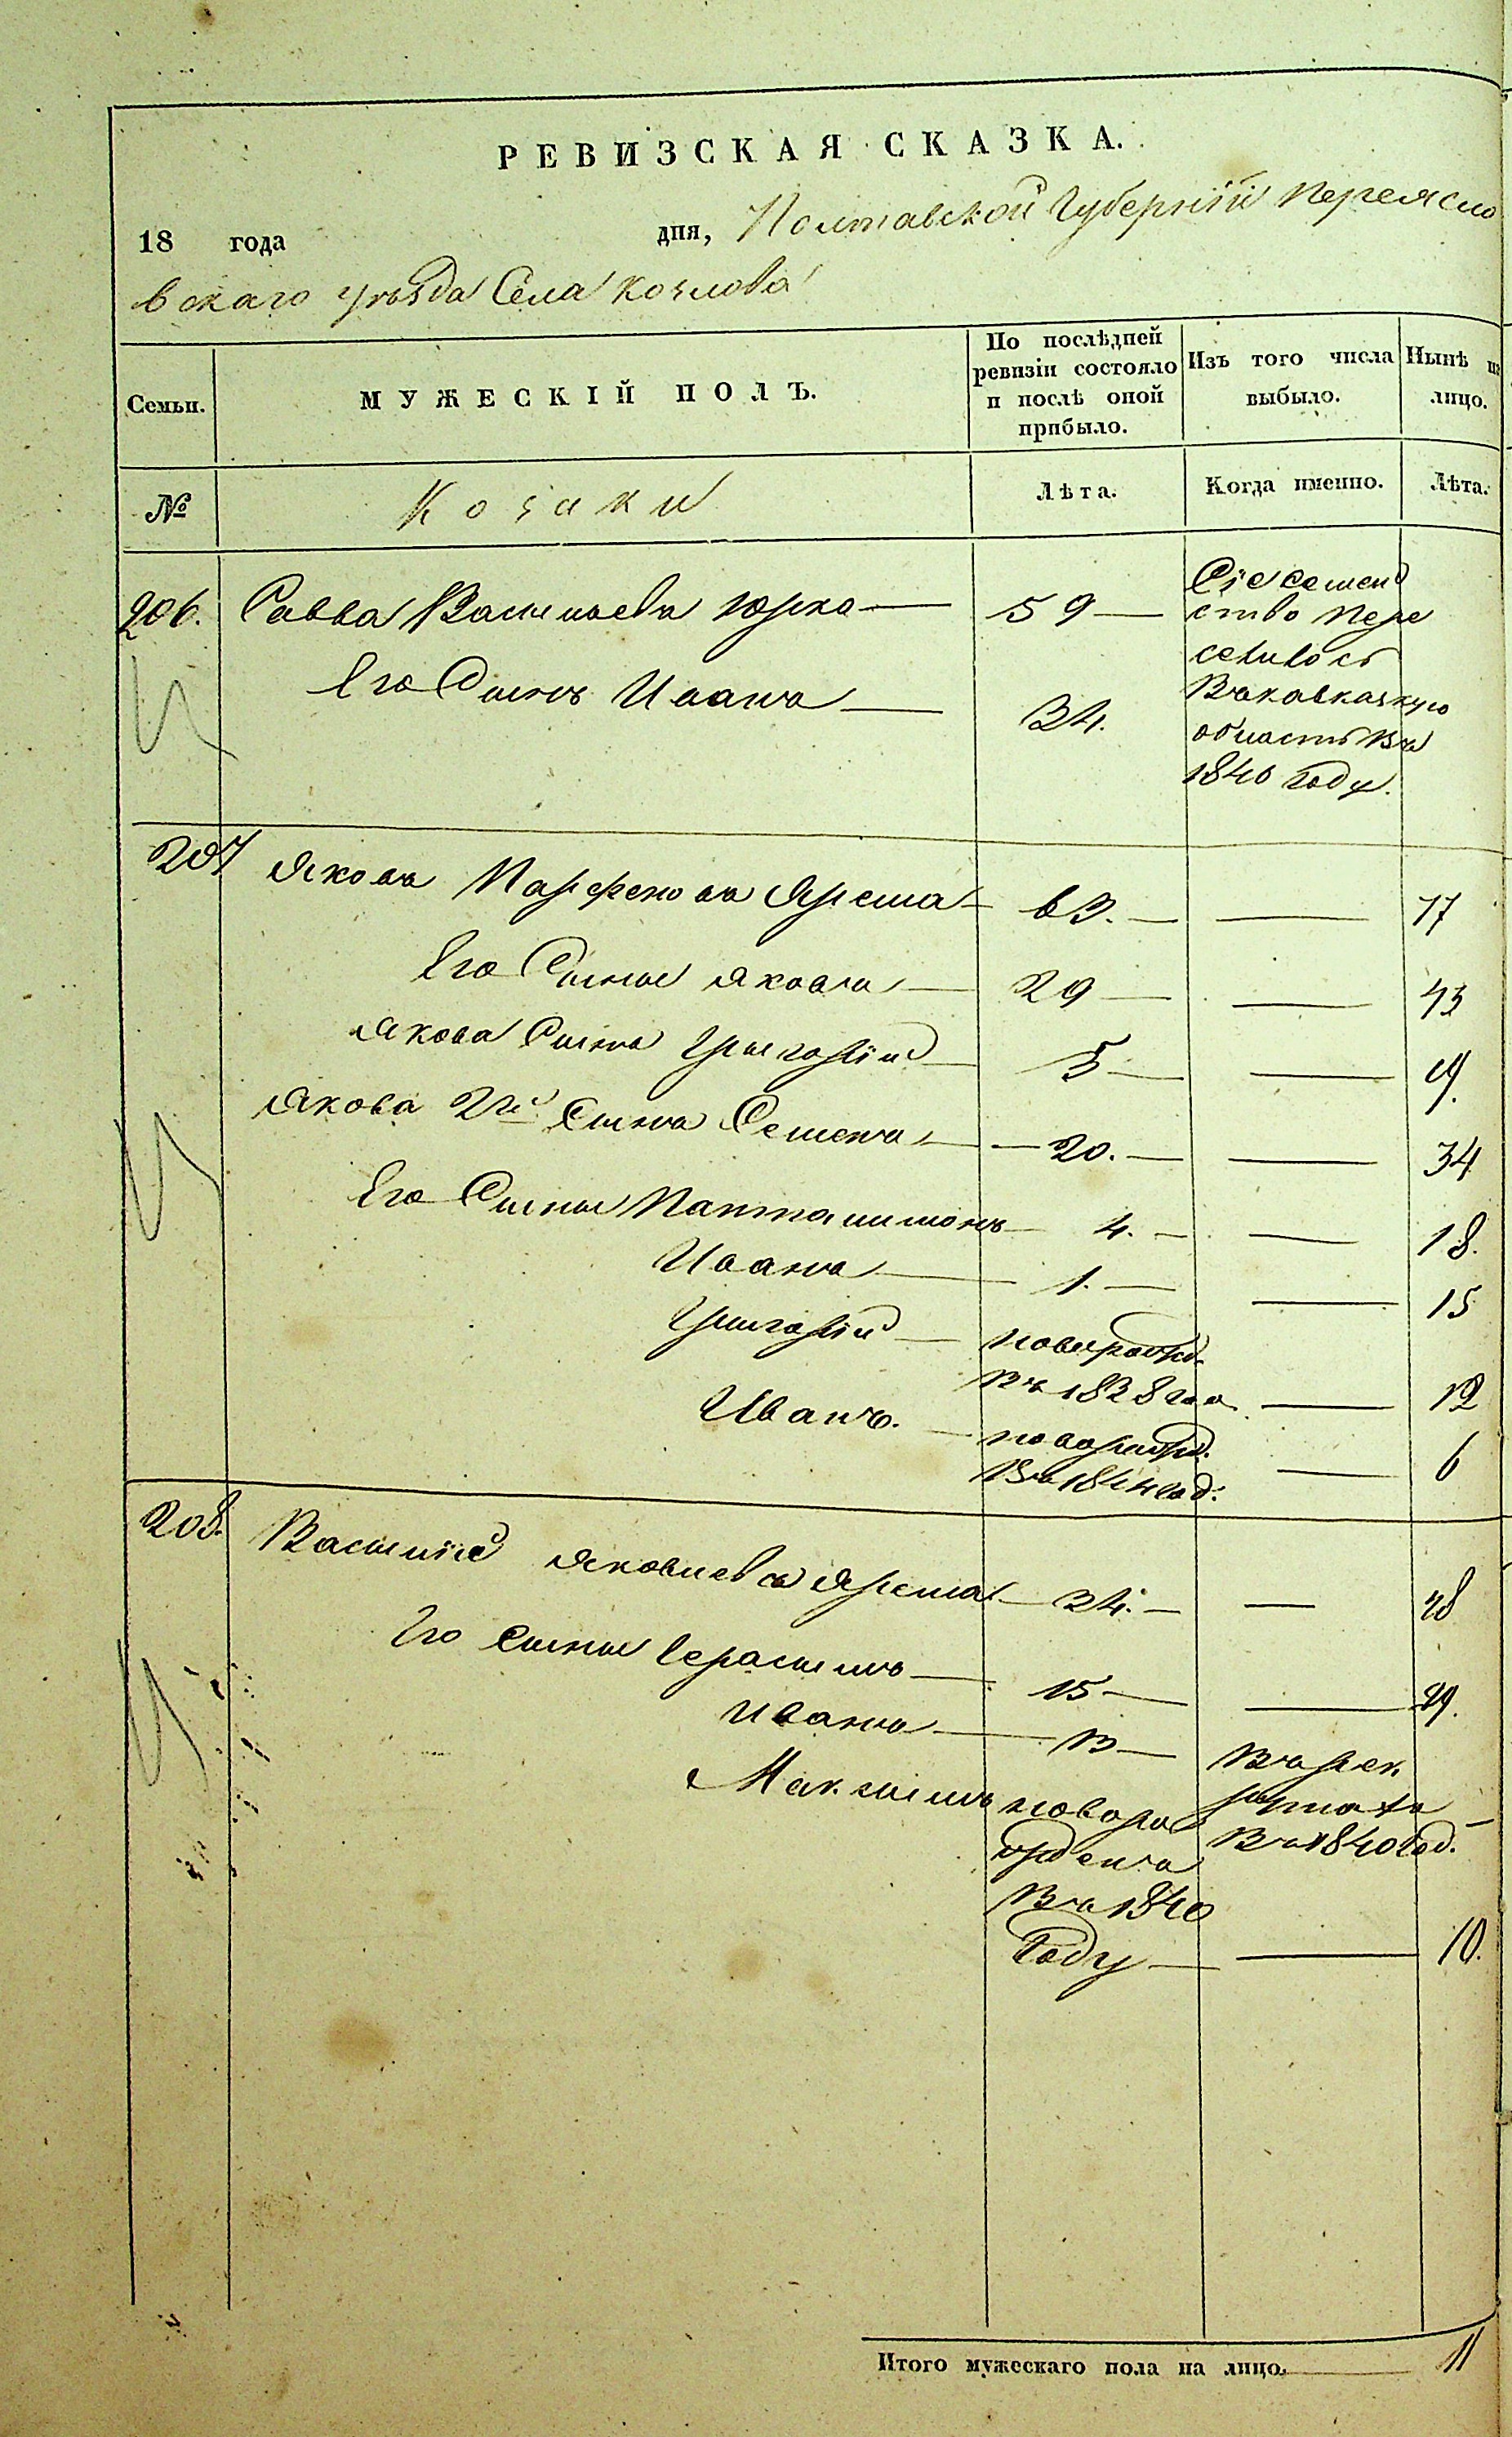 РЕВИЗСКАЯ СКАЗКА.
18 года дня, Полтавской Губерніи Переясло
вскаго уѣзда Села Козлова
Семьи. МУЖЕСКІЙ ПОЛЪ. По послѣдней ревизіи состояло и послѣ оной прибыло. Изъ того числа выбыло. Нынѣ на лицо.
№ Козаки Лѣта. Когда именно. Лѣта.
206. Савва Васильевъ Юрко 59 Сіе семей
ство пере
селилось
Его Сынъ Иванъ 34. Въ кавказкую
область въ
1846 году.
207 Яковъ Парфеновъ Ярема 63. 77
Его Сыны Яковъ 29 43
Якова Сынъ Григорій 5 19.
Якова 2й Сынъ Семенъ 20. 34
Его Сыны Пантилимонъ 4. 18.
Иванъ 1. 15
Григорій новорожд.
въ 1838 год 12
Иванъ. новорожд.
въ 1844 год: 6
208. Василій Яковлевъ Ярема 34. 48
Его Сыны Герасимъ 15 29.
Иванъ 13 Въ рек
рутахъ
въ 1840 год.
Максимъ новоро
жденъ
въ 1840
году 10.
Итого мужескаго пола на лицо. 11